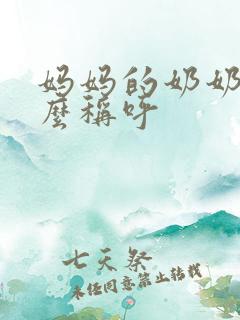 妈妈的奶奶
麽稱呼
七天祭
未经同意禁止转载